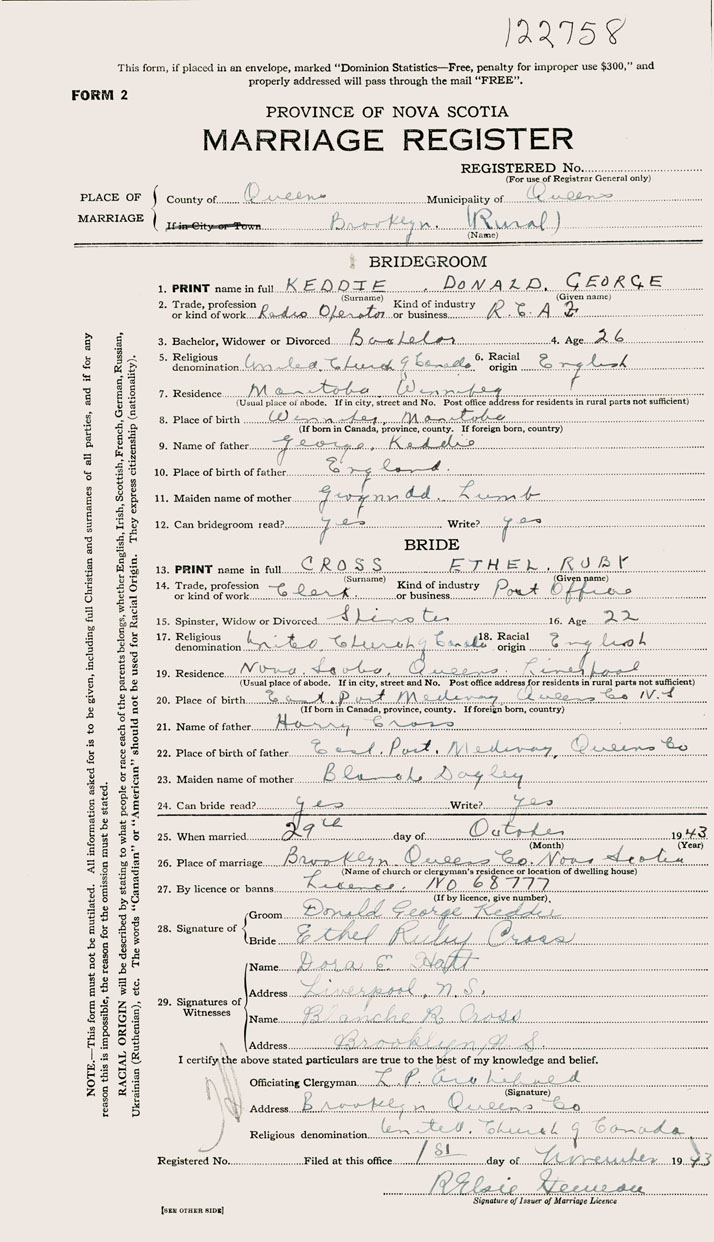 122758
This form, if placed in an envelope, marked "Dominion Statistics—Free, penalty for improper use $300," and
properly addressed will pass through the mail "FREE".
FORM 2
PROVINCE OF NOVA SCOTIA
MARRIAGE REGISTER
REGISTERED No.
(For use of Registrar General only)
PLACE OF MARRIAGE
County of Queens Municipality of Queens
If in City or Town Brooklyn. (Rural)
(Name)
BRIDEGROOM
1. PRINT name in full KEDDIE, DONALD, GEORGE
(Surname) (Given name)
2. Trade, profession or kind of work Radio Operator Kind of industry or business R.C.A.F
3. Bachelor, Widower or Divorced Bachelor 4. Age 26
5. Religious denomination United Church of Canada 6. Racial origin English
7. Residence Manitoba, Winnipeg
(Usual place of abode. If in city, street and No. Post office address for residents in rural parts not sufficient)
8. Place of birth Winnipeg, Manitoba
(If born in Canada, province, county. If foreign born, country)
9. Name of father George Keddie
10. Place of birth of father England.
11. Maiden name of mother Lumb
12. Can bridegroom read? yes Write? yes
BRIDE
13. PRINT name in full CROSS ETHEL, RUBY
(Surname) (Given name)
14. Trade, profession or kind of work Clerk Kind of industry or business Post Office
15. Spinster, Widow or Divorced Spinster 16. Age 22
17. Religious denomination United Church of Canada 18. Racial origin English
19. Residence Nova Scotia, Queens, Liverpool
(Usual place of abode. If in city, street and No. Post office address for residents in rural parts not sufficient)
20. Place of birth East Port Medway Queens Co N.S
(If born in Canada, province, county. If foreign born, country)
21. Name of father Harry Cross
22. Place of birth of father East Port Medway, Queens Co
23. Maiden name of mother Blanche Dagley
24. Can bride read? yes Write? yes
25. When married 29th day of October 1943
(Month) (Year)
26. Place of marriage Brooklyn Queens Co. Nova Scotia
(Name of church or clergyman's residence or location of dwelling house)
27. By licence or banns Licence. No 68777
(If by licence, give number)
28. Signature of
Groom Donald George Keddie
Bride Ethel Ruby Cross
29. Signatures of Witnesses
Name Dora E.
Address Liverpool, N.S.
Name Blanche R Cross
Address Brooklyn N.S.
I certify the above stated particulars are true to the best of my knowledge and belief.
Officiating Clergyman L. P. Archibald
(Signature)
Address Brooklyn Queens Co
Religious denomination United Church of Canada
Registered No. Filed at this office 1st day of November 1943
R Elsie
Signature of Issuer of Marriage Licence
[SEE OTHER SIDE]
NOTE.—This form must not be mutilated. All information asked for is to be given, including full Christian and surnames of all parties, and if for any
reason this is impossible, the reason for the omission must be stated.
RACIAL ORIGIN will be described by stating to what people or race each of the parents belongs, whether English, Irish, Scottish, French, German, Russian,
Ukrainian (Ruthenian), etc. The words "Canadian" or "American" should not be used for Racial Origin. They express citizenship (nationality).